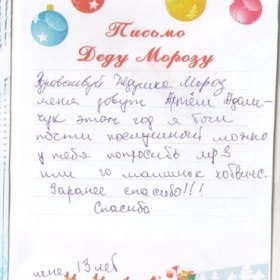 Письмо
Деду Морозу
Здравствуй Дедушка Мороз
меня зовут Артём Адам-
чук этот год я был
почти послушный можно
у тебя попросить мр3
или 10 машинок хотвилс.
Заранее спасибо!!!
Спасибо
мне 13 лет